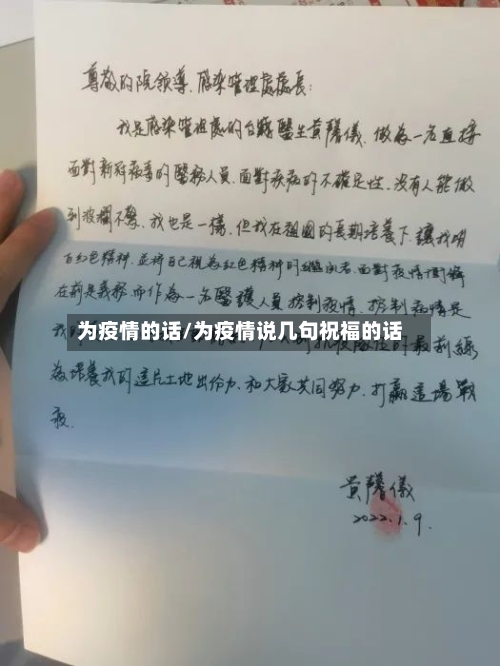 尊敬的院领導、感染管理處處長:
我是感染管理處的台籍醫生黄馨儀,做為一名直接
面對新冠病毒的醫務人員,面對疾病的不確定性,没有人能做
到波瀾不驚,我也是一樣,但我在祖國的長期培養下,讓我明
白红色精神,並將自己視為红色精神的
面對疫情
在前是義務,而作為一名醫護人員,控制疫情、控制病情是
我
为疫情的话/为疫情说几句祝福的话
的最前線
為培養我的這片土地出份力,和大家共同努力,打赢這場戰
疫.
黄馨儀
2022.1.9.